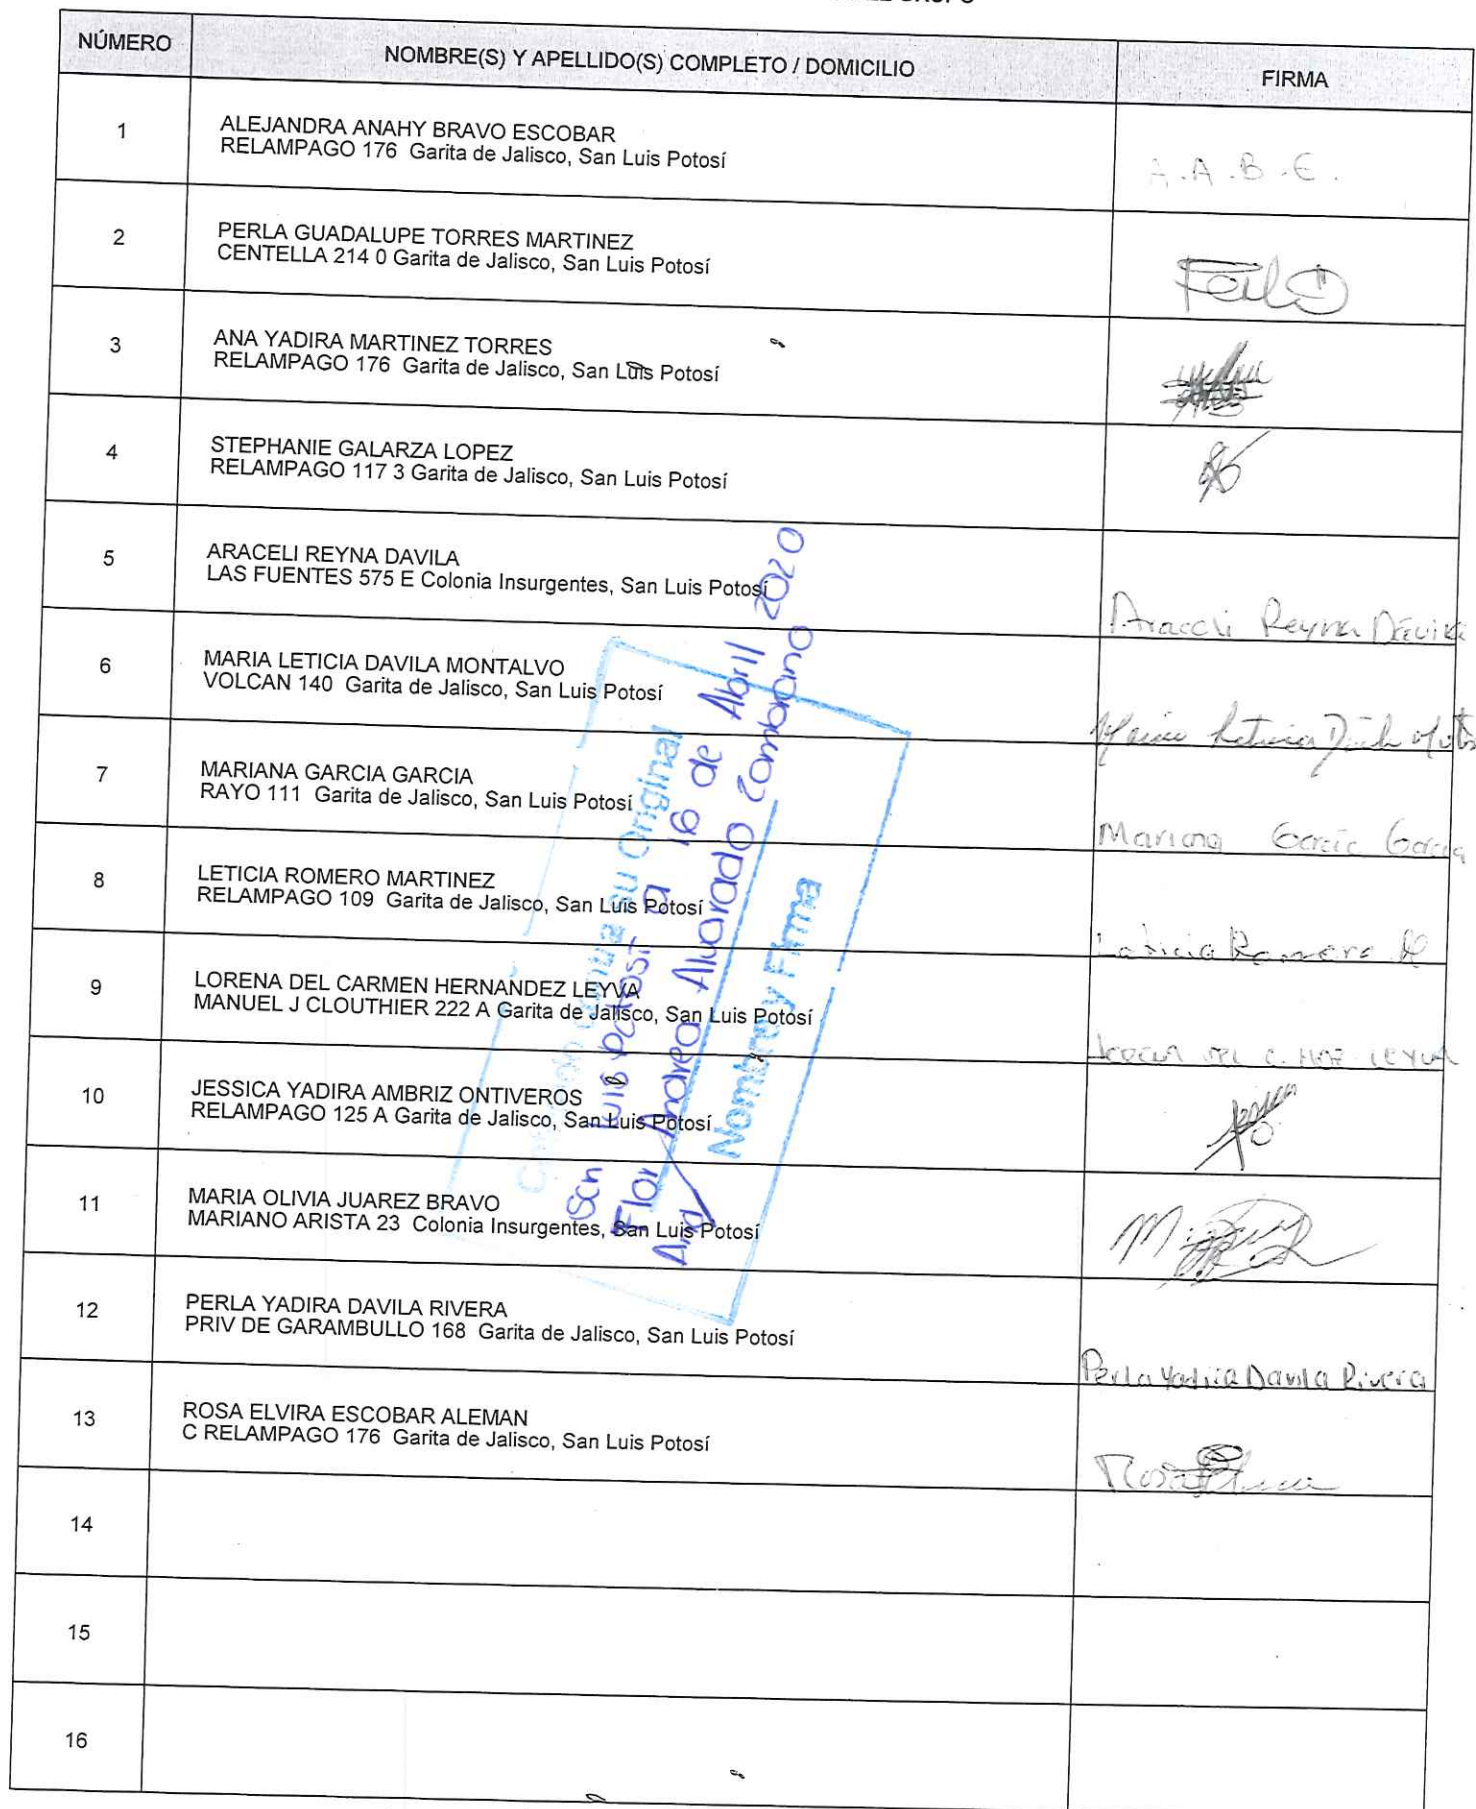 GRUPO
NÚMERO
NOMBRE(S) Y APELLIDO(S) COMPLETO / DOMICILIO
FIRMA
1
ALEJANDRA ANAHY BRAVO ESCOBAR
RELAMPAGO 176 Garita de Jalisco, San Luis Potosí
A.A.B.E.
2
PERLA GUADALUPE TORRES MARTINEZ
CENTELLA 214 0 Garita de Jalisco, San Luis Potosí
3
ANA YADIRA MARTINEZ TORRES
RELAMPAGO 176 Garita de Jalisco, San Luis Potosí
4
STEPHANIE GALARZA LOPEZ
RELAMPAGO 117 3 Garita de Jalisco, San Luis Potosí
5
ARACELI REYNA DAVILA
LAS FUENTES 575 E Colonia Insurgentes, San Luis Potosí
Araceli Reyna Dávila
6
MARIA LETICIA DAVILA MONTALVO
VOLCAN 140 Garita de Jalisco, San Luis Potosí
7
MARIANA GARCIA GARCIA
RAYO 111 Garita de Jalisco, San Luis Potosí
Mariana García García
8
LETICIA ROMERO MARTINEZ
RELAMPAGO 109 Garita de Jalisco, San Luis Potosí
Leticia Romero M
9
LORENA DEL CARMEN HERNANDEZ LEYVA
MANUEL J CLOUTHIER 222 A Garita de Jalisco, San Luis Potosí
LORENA DEL C. HDZ LEYVA
10
JESSICA YADIRA AMBRIZ ONTIVEROS
RELAMPAGO 125 A Garita de Jalisco, San Luis Potosí
11
MARIA OLIVIA JUAREZ BRAVO
MARIANO ARISTA 23 Colonia Insurgentes, San Luis Potosí
12
PERLA YADIRA DAVILA RIVERA
PRIV DE GARAMBULLO 168 Garita de Jalisco, San Luis Potosí
Perla Yadira Davila Rivera
13
ROSA ELVIRA ESCOBAR ALEMAN
C RELAMPAGO 176 Garita de Jalisco, San Luis Potosí
14
15
16
contra su Original
San Luis Potosí a 16 de Abril 2020
Flor Andrea Alvarado Zambrano
Nombre y Firma